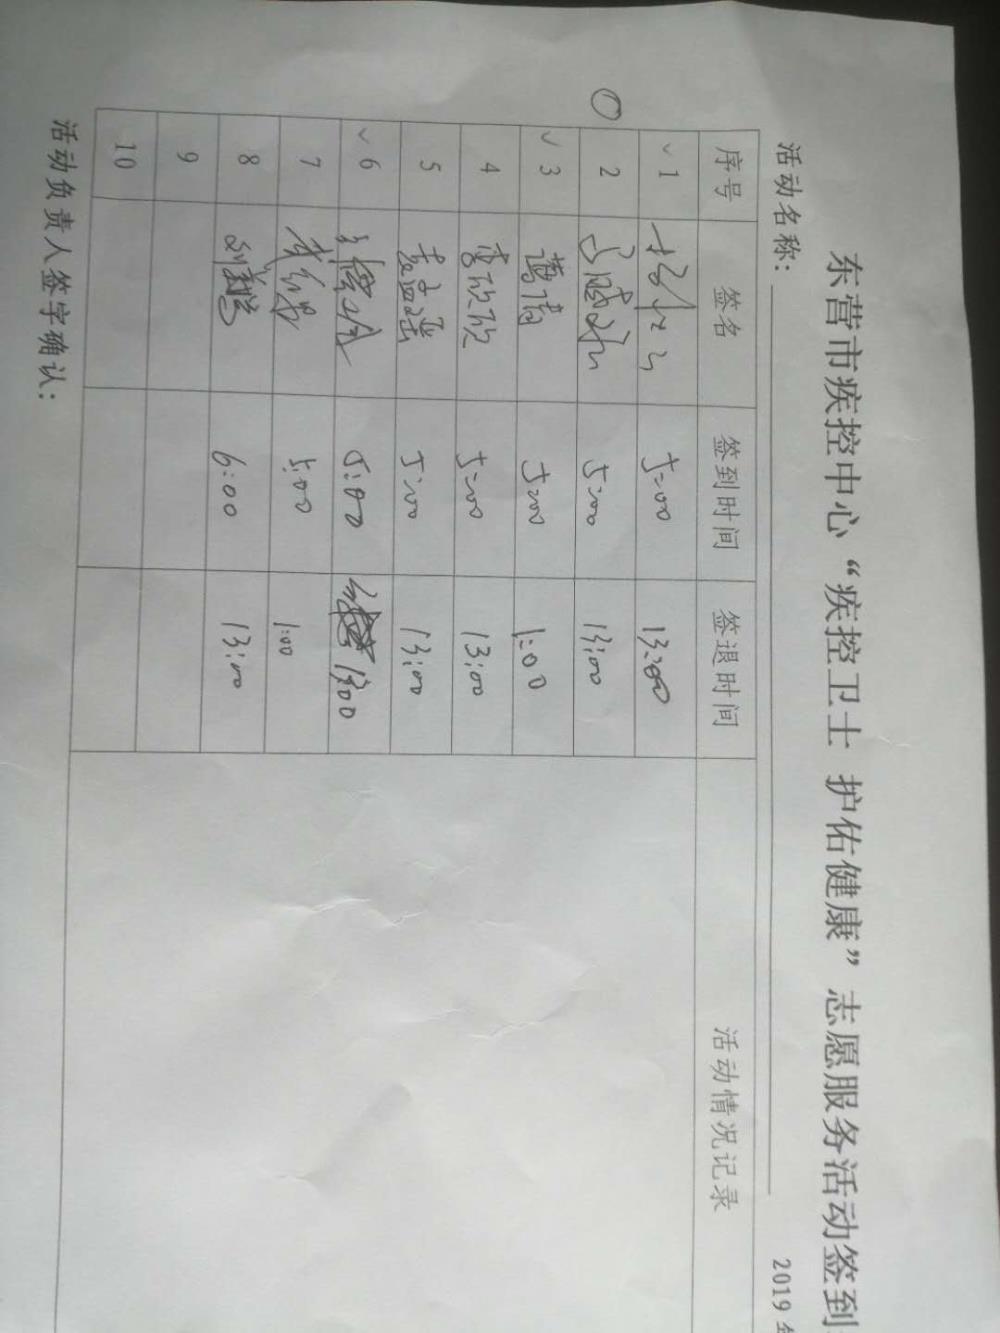 东营市疾控中心“疾控卫士 护佑健康”志愿服务活动签到
活动名称：
2019
序号 签名 签到时间 签退时间 活动情况记录
✓ 1 5:00 13:00
2 5:00 13:00
✓ 3 5:00 1:00
4 李欣欣 5:00 13:00
5 5:00 13:00
✓ 6 5:00 13:00
7 5:00 1:00
8 6:00 13:00
9
10
活动负责人签字确认：